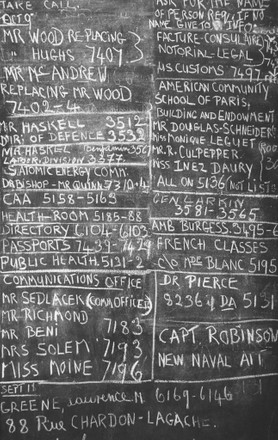 TAKE CALL.
MR WOOD REPLACING
" HUGHS 7407
MR MC ANDREW
REPLACING MR WOOD
7402-4
MR HASKELL 3512
DIR. OF DEFENCE 3532
MR HASKELL Benjamin 3567
LABOR DIVISION 3377
S. ATOMIC ENERGY COMM.
DR BISHOP - MR QUINN 73/04
CAA 5158-5163
HEALTH-ROOM 5185-88
DIRECTORY 6104-6103
PASSPORTS 7439-7429
PUBLIC HEALTH 5131-2
COMMUNICATIONS OFFICE
MR SEDLACEK (COMM OFFICE)
MR RICHMOND
MR BENI 7183
MRS SOLEM 7193
MISS MOINE 7196
ASK FOR THE NAME
OF PERSON REP. IF NO
NAME GIVE TO
FACTURE-CONSULAIRE
NOTORIAL-LEGAL
US CUSTOMS 7497
AMERICAN COMMUNITY
SCHOOL OF PARIS,
BUILDING AND ENDOWMENT
MR DOUGLAS-SCHNEIDER
MISS MONIQUE LEGUET
MR. R. CULPEPPER
MISS INEZ DAURY
ALL ON 5136 NOT LIST
GEN LARKIN
3581-3565
AMB BURGESS 3495-6
FRENCH CLASSES
C/O MRS BLANC 5195
DR PIERCE
8236 DA 5131
CAPT ROBINSON
NEW NAVAL ATT
SEPT 13
GREENE, Lawrence N 6169-6146
88 Rue CHARDON-LAGACHE.